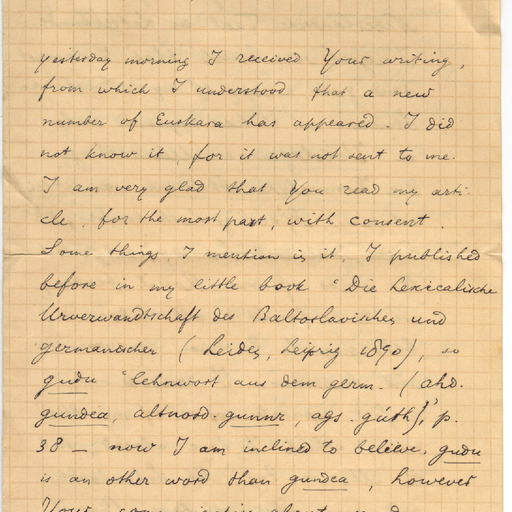 yesterday morning I received Your writing,
from which I understood that a new
number of Euskara has appeared. I did
not know it, for it was not sent to me.
I am very glad that You read my arti-
cle, for the most part, with consent.
Some things I mention in it, I published
before in my little book "Die Lexicalische
Urverwandtschaft des Baltoslavischen und
Germanischen (Leiden, Leipzig 1890), so
gudu "lehnwort aus dem germ. (ahd.
gundea, altnord. gunnr, ags. gúth)," p.
38 — now I am inclined to believe, gudu
is an other word than gundea, however
Your about